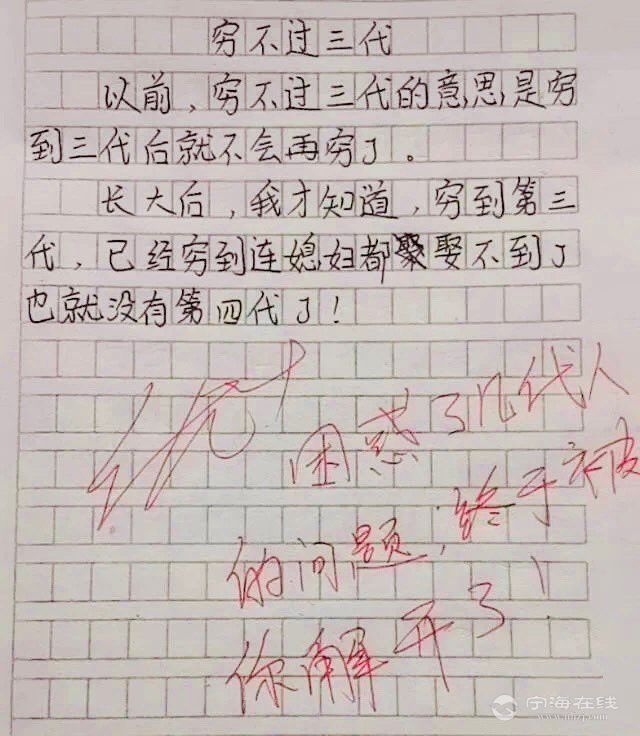 穷不过三代
以前，穷不过三代的意思是穷
到三代后就不会再穷了。
长大后，我才知道，穷到第三
代，已经穷到连媳妇都娶不到了
也就没有第四代了！
优+
困惑了几代人
的问题，终于被
你解开了！
宁海在线
www.nhzj.com